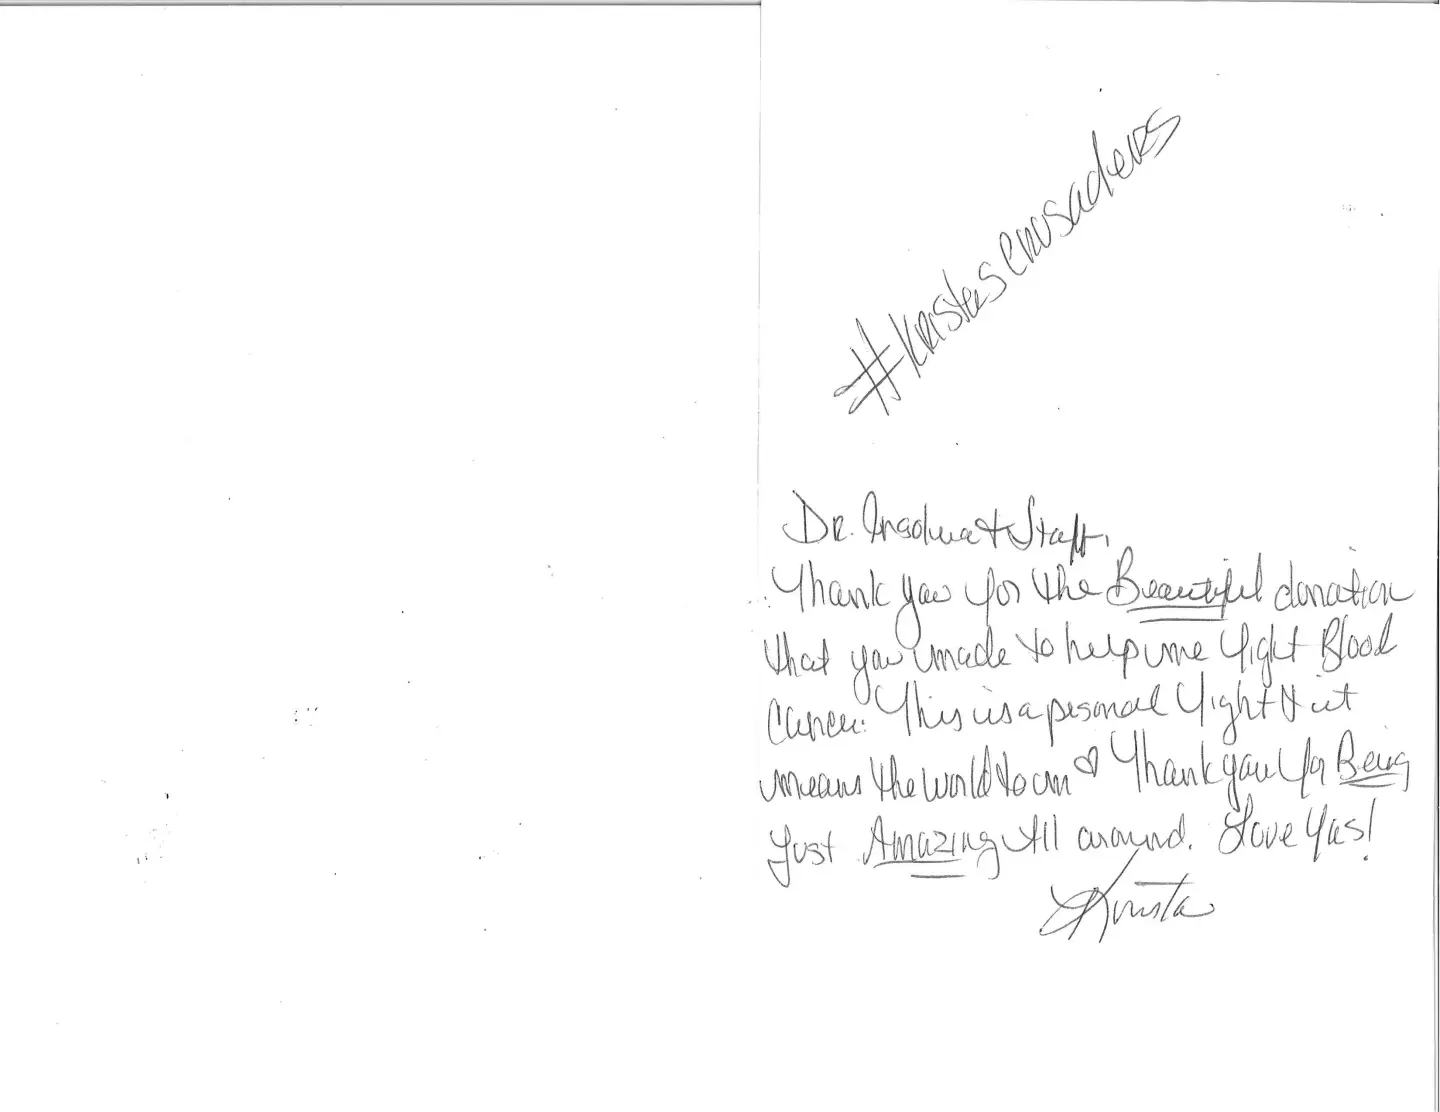 #KristasCrusaders
Dr. & Staff,
Thank you for the Beautiful donation
that you made to help me fight Blood
Cancer. This is a personal fight & it
means the world to me ♡ Thank you for Being
Just Amazing All around. Love Yas!
Krista